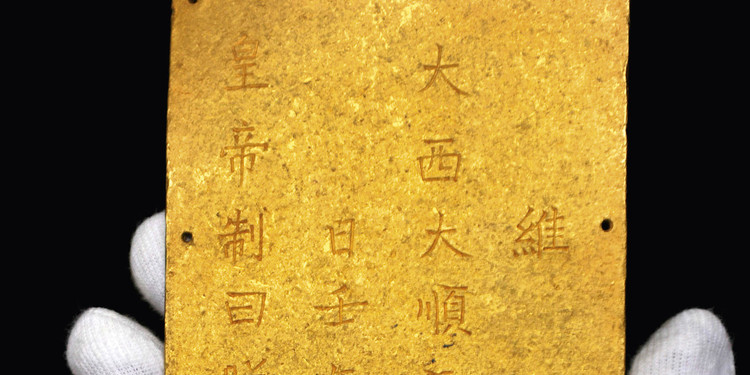 維
大西大順
日壬
皇帝制曰